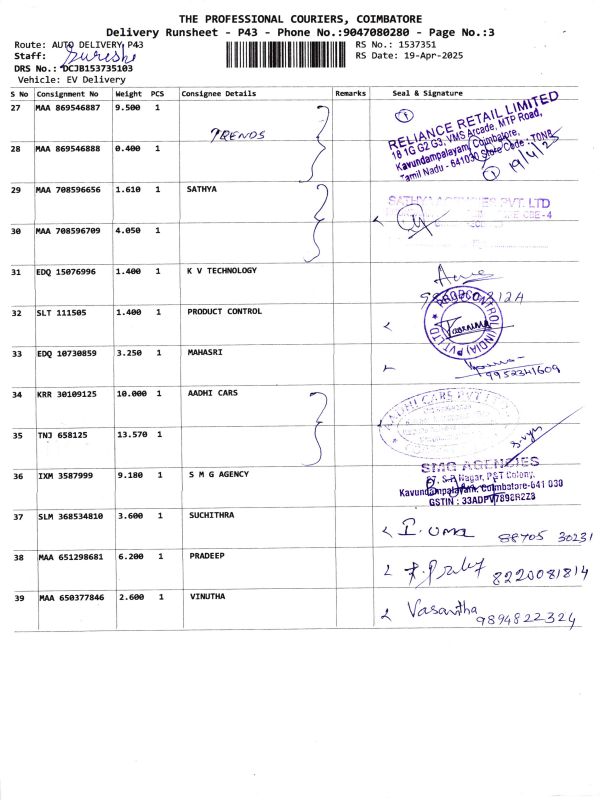 THE PROFESSIONAL COURIERS, COIMBATORE
Delivery Runsheet - P43 - Phone No.:9047080280 - Page No.:3
Route: AUTO DELIVERY P43
RS No.: 1537351
Staff: Suresh
RS Date: 19-Apr-2025
DRS No.: DCJB153735103
Vehicle: EV Delivery
S No Consignment No Weight PCS Consignee Details Remarks Seal & Signature
27 MAA 869546887 9.500 1
TRENDS
1
RELIANCE RETAIL LIMITED
18 1G G2 G3, VMS Arcade, MTP Road,
Kavundampalayam, Coimbatore,
Tamil Nadu - 641030 Store Code : T0NB
1 19/4/25
28 MAA 869546888 0.400 1
29 MAA 708596656 1.610 1 SATHYA
SATHYA AGENCIES PVT. LTD
CBE-4
30 MAA 708596709 4.050 1
31 EDQ 15076996 1.400 1 K V TECHNOLOGY
32 SLT 111505 1.400 1 PRODUCT CONTROL
PRODCONTROL (INDIA) PVT. LTD
33 EDQ 10730859 3.250 1 MAHASRI
9952341609
34 KRR 30109125 10.000 1 AADHI CARS
AADHI CARS PVT. LTD
35 TNJ 658125 13.570 1
36 IXM 3587999 9.180 1 S M G AGENCY
SMG AGENCIES
Nagar, P&T Colony,
Kavundampalayam, Coimbatore-641 030
GSTIN : 33ADPV7898R2Z8
37 SLM 368534810 3.600 1 SUCHITHRA
I. UMA 88705 30231
38 MAA 651298681 6.200 1 PRADEEP
8220081814
39 MAA 650377846 2.600 1 VINUTHA
Vasantha 9894822324